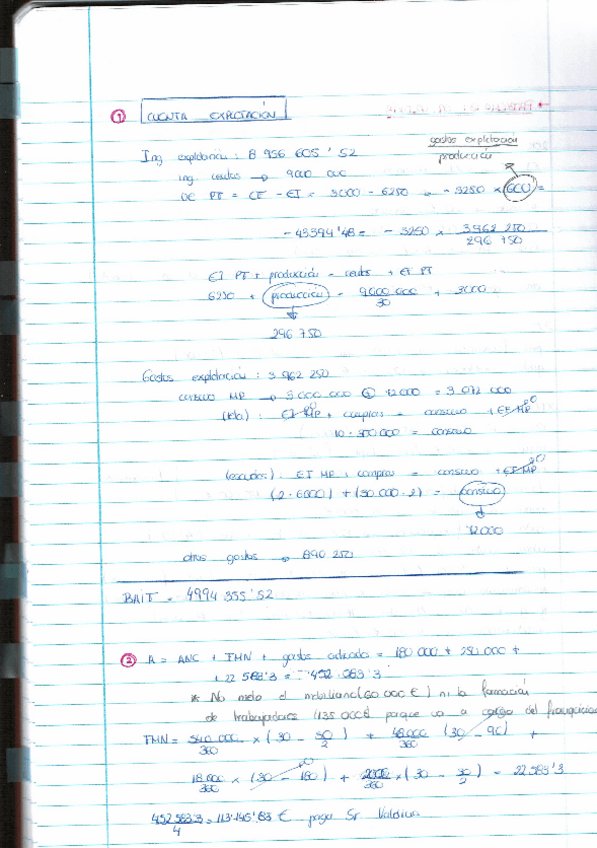 ① CUENTA EXPLOTACIÓN
Ing explotación : 8 956 605'52
ing ventas → 9000 000
DE PT = EF - EI = 3000 - 6250 = -3250 × GCU =
gastos explotación
producción
-43394'48 = -3250 × 3962 250
296 750
EI PT + producción = ventas + EF PT
6250 + producción = 9000 000 + 3000
30
296 750
Gastos explotación : 3 962 250
consumo MP → 3 000 000 + 72000 = 3 072 000
(tela) : EI MP + compras = consumo + EF MP 0
10 · 300 000 = consumo
(escudos) : EI MP + compras = consumo + EF MP 0
(2 · 6000) + (30 000 · 2) = consumo
72000
otros gastos → 890 250
BAIT = 4994 355'52
② A = ANC + TMN + gastos = 180 000 + 250 000 +
+ 22 583'3 = 452 583'3
* No meto el mobiliario (60 000 €) ni la formación
de trabajadores (135 000€) porque va a cargo del franquiciado
TMN = 540 000 × (30 - 30 ) + 48000 (30 - 90) +
360 2 360
18 000 × (30 - 180) 0 + × (30 - 30 ) = 22 583'3
360 360 2
452 583'3 = 113 145'83 € paga Sr
4